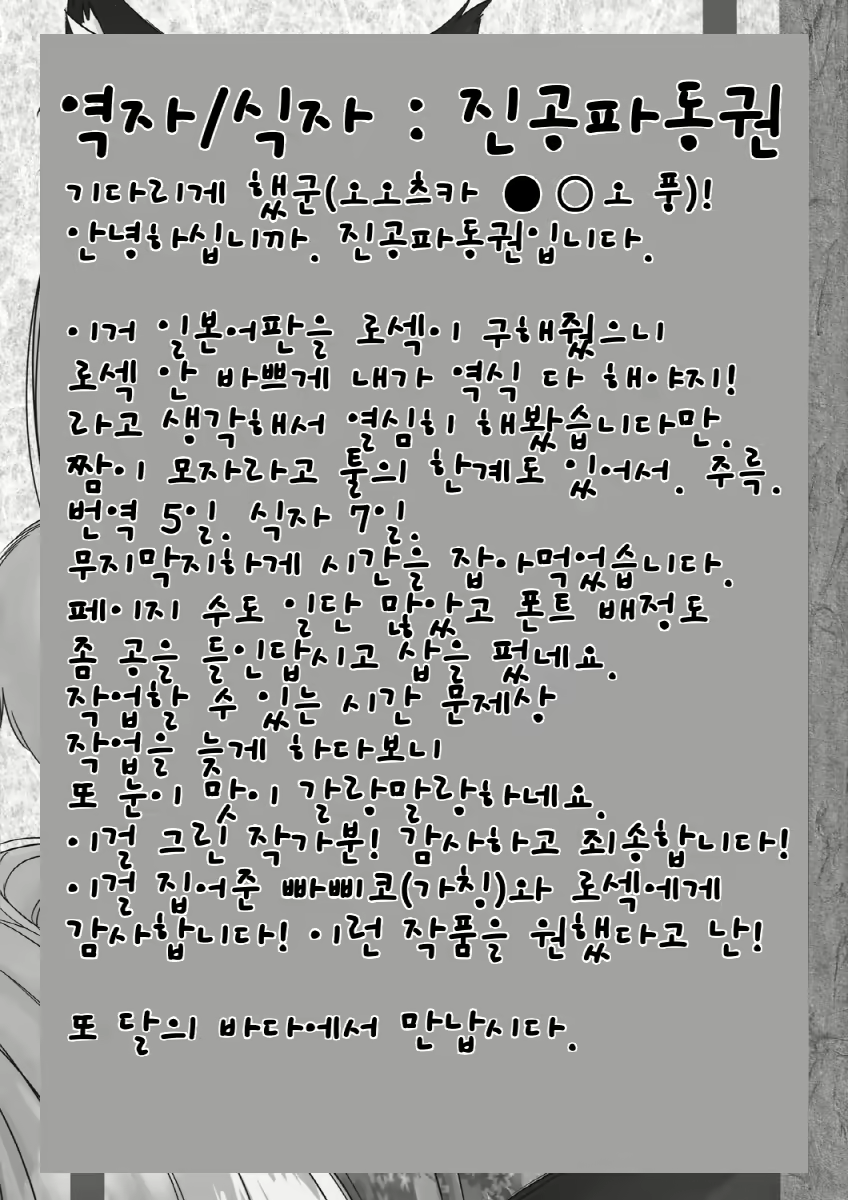 역자/식자 : 진공파동권
기다리게 했군(오오츠카 ●○오 풍)!
안녕하십니까. 진공파동권입니다.
이거 일본어판을 로섹이 구해줬으니
로섹 안 바쁘게 내가 역식 다 해야지!
라고 생각해서 열심히 해봤습니다만.
짬이 모자라고 툴의 한계도 있어서. 주륵.
번역 5일. 식자 7일.
무지막지하게 시간을 잡아먹었습니다.
페이지 수도 일단 많았고 폰트 배정도
좀 공을 들인답시고 삽을 펐네요.
작업할 수 있는 시간 문제상
작업을 늦게 하다보니
또 눈이 맛이 갈랑말랑하네요.
이걸 그린 작가분! 감사하고 죄송합니다!
이걸 집어준 빠삐코(가칭)와 로섹에게
감사합니다! 이런 작품을 원했다고 난!
또 달의 바다에서 만납시다.